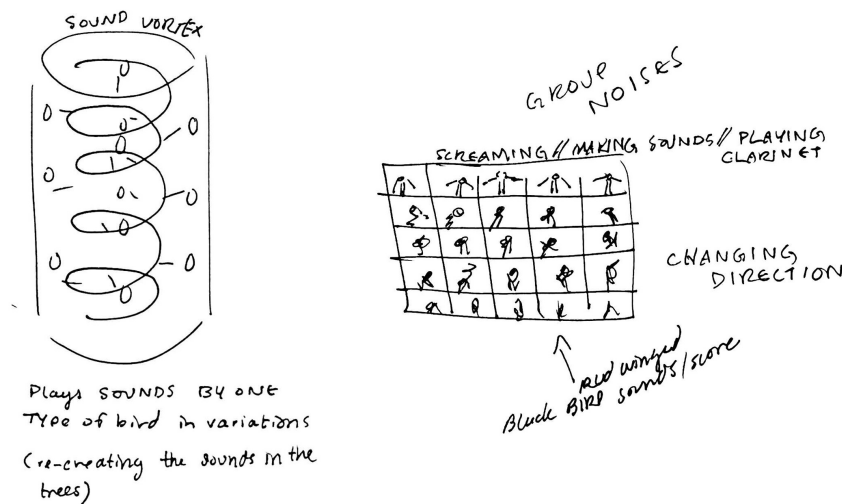 SOUND VORTEX
Plays SOUNDS BY ONE
Type of bird in variations
(re-creating the sounds in the
trees)
GROUP
NOISES
SCREAMING // MAKING SOUNDS // PLAYING
CLARINET
CHANGING
DIRECTION
Red winged
Black BIRD sounds/score